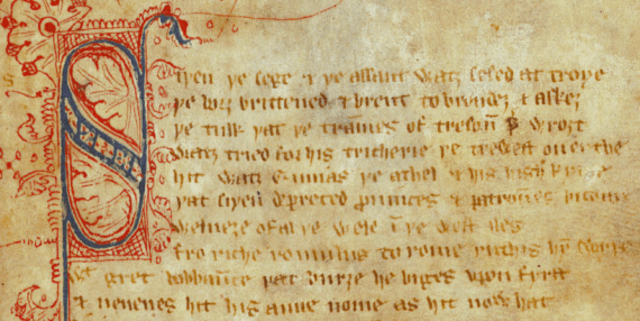 Siþen þe sege & þe assaut watz sesed at troye
þe borȝ brittened & brent to brondeȝ & askez
þe tulk þat þe trammes of tresoun þer wroȝt
Watz tried for his tricherie þe trewest on erthe
hit watz Ennias þe athel & his highe kynde
þat siþen depreced prouinces & patrounes bicome
welneȝe of al þe wele in þe west iles
fro riche romulus to rome ricchis hym
gret bobbaunce þat burȝe he biges vpon fyrst
& neuenes hit his aune nome as hit now hat